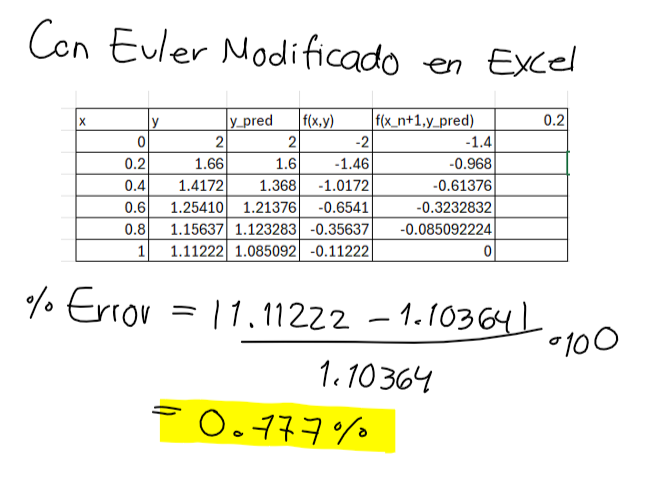 Con Euler Modificado en Excel
x y y_pred f(x,y) f(x_n+1,y_pred) 0.2
0 2 2 -2 -1.4
0.2 1.66 1.6 -1.46 -0.968
0.4 1.4172 1.368 -1.0172 -0.61376
0.6 1.25410 1.21376 -0.6541 -0.3232832
0.8 1.15637 1.123283 -0.35637 -0.085092224
1 1.11222 1.085092 -0.11222 0
% Error = |1.11222 - 1.10364| •100
1.10364
= 0.777%